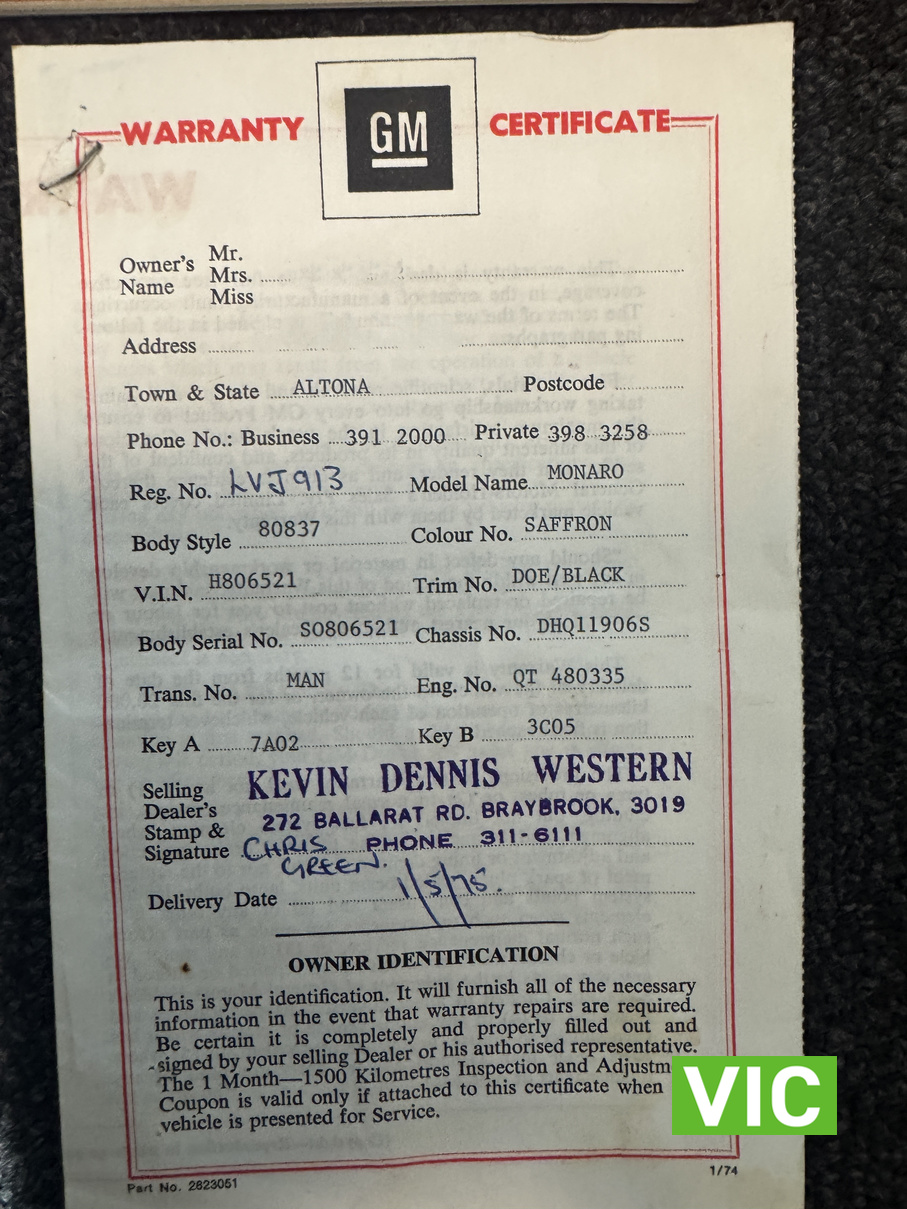 WARRANTY GM CERTIFICATE
Owner's Name Mr. Mrs. Miss
Address
Town & State ALTONA Postcode
Phone No.: Business 391 2000 Private 398 3258
Reg. No. LVJ913 Model Name MONARO
Body Style 80837 Colour No. SAFFRON
V.I.N. H806521 Trim No. DOE/BLACK
Body Serial No. SO806521 Chassis No. DHQ11906S
Trans. No. MAN Eng. No. QT 480335
Key A 7A02 Key B 3C05
Selling Dealer's Stamp & Signature
KEVIN DENNIS WESTERN
272 BALLARAT RD. BRAYBROOK, 3019
PHONE 311-6111
CHRIS GREEN.
Delivery Date 1/5/75.
OWNER IDENTIFICATION
This is your identification. It will furnish all of the necessary
information in the event that warranty repairs are required.
Be certain it is completely and properly filled out and
signed by your selling Dealer or his authorised representative.
The 1 Month—1500 Kilometres Inspection and Adjustm
Coupon is valid only if attached to this certificate when
vehicle is presented for Service.
VIC
Part No. 2823051
1/74